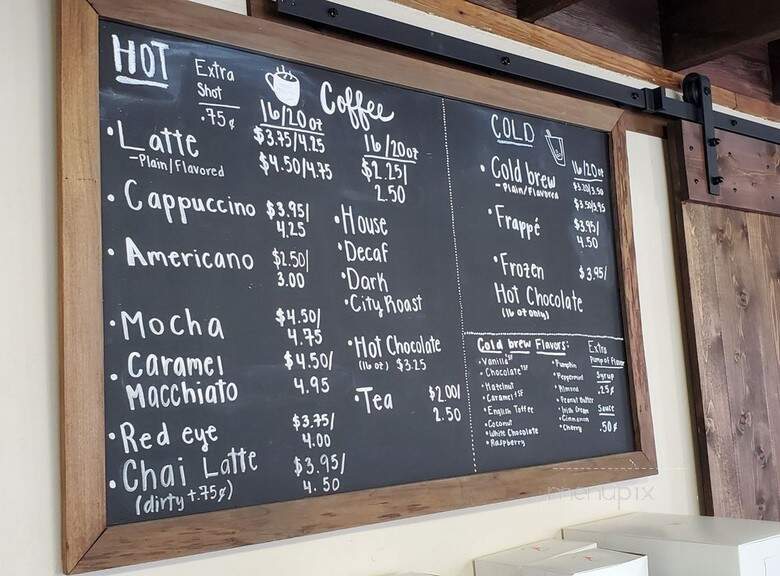 HOT
Extra
Shot
.75¢
16/20oz
•Latte $3.75/4.25
-Plain/Flavored $4.50/4.75
•Cappuccino $3.95/
4.25
•Americano $2.50/
3.00
•Mocha $4.50/
4.75
•Caramel $4.50/
Macchiato 4.95
•Red eye $3.75/
4.00
•Chai Latte $3.95/
(dirty +.75¢) 4.50
Coffee
16/20oz
$2.25/
2.50
•House
•Decaf
•Dark
•City Roast
•Hot Chocolate
(16 oz) $3.25
•Tea $2.00/
2.50
COLD
16/20oz
•Cold brew $3.20/3.50
-Plain/Flavored $3.50/3.95
•Frappé $3.95/
4.50
•Frozen $3.95/
Hot Chocolate
(16 oz only)
Cold brew Flavors:
•Vanilla SF
•Chocolate SF
•Hazelnut
•Caramel SF
•English Toffee
•Coconut
•White Chocolate
•Raspberry
•Pumpkin
•Peppermint
•Almond
•Peanut Butter
•Irish Cream
•Cinnamon
•Cherry
Extra
Pump of Flavor
Syrup
.25¢
Sauce
.50¢
menupix